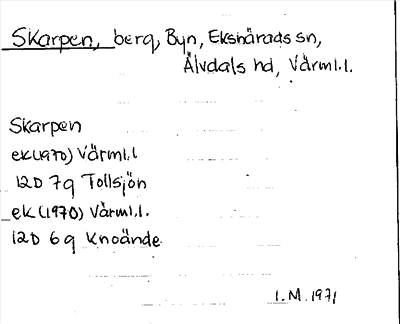 Skarpen, berg, Byn, Ekshärads sn,
Älvdals hd, Värml.l.
Skarpen
ek(1970) Värml.l
12D 7g Tollsjön
ek(1970) Värml.l.
12D 6g Knoände
I.M. 1971